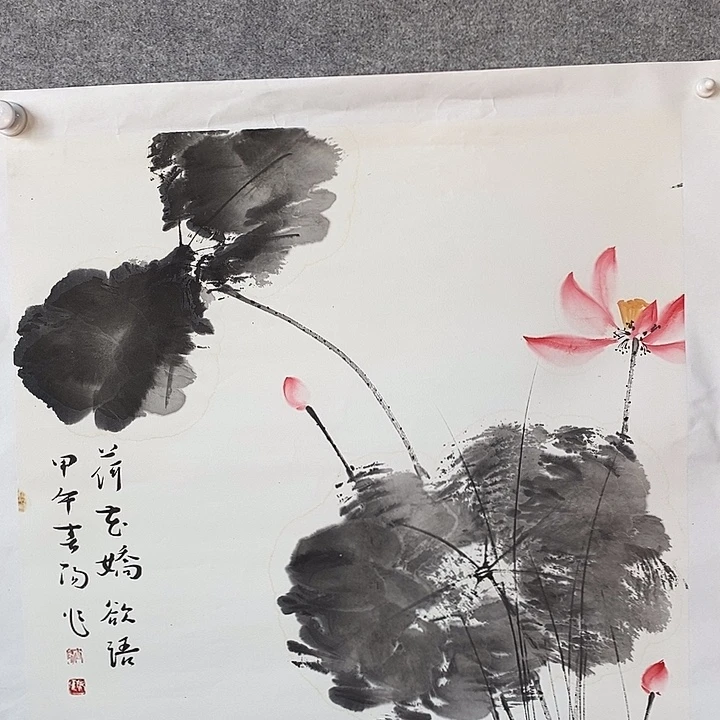 荷花嬌欲語
甲午春阳作